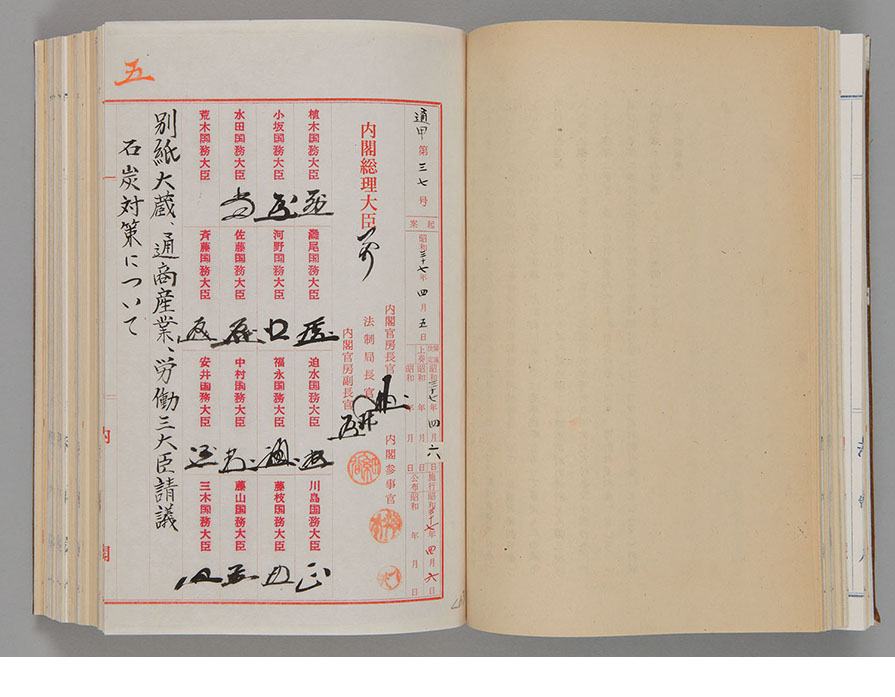 五
通甲第三七号
起案
昭和三十七年四月五日
閣議決定昭和三十七年四月六日
上奏昭和 年 月 日
昭和 年 月 日
施行昭和三十七年四月六日
公布昭和 年 月 日
内閣総理大臣
内閣官房長官
法制局長官
内閣官房副長官
内閣参事官
植木国務大臣
灘尾国務大臣
迫水国務大臣
川島国務大臣
小坂国務大臣
河野国務大臣
福永国務大臣
藤枝国務大臣
水田国務大臣
佐藤国務大臣
中村国務大臣
藤山国務大臣
荒木国務大臣
斉藤国務大臣
安井国務大臣
三木国務大臣
別紙大蔵、通商産業、労働三大臣請議
石炭対策について
内
閣